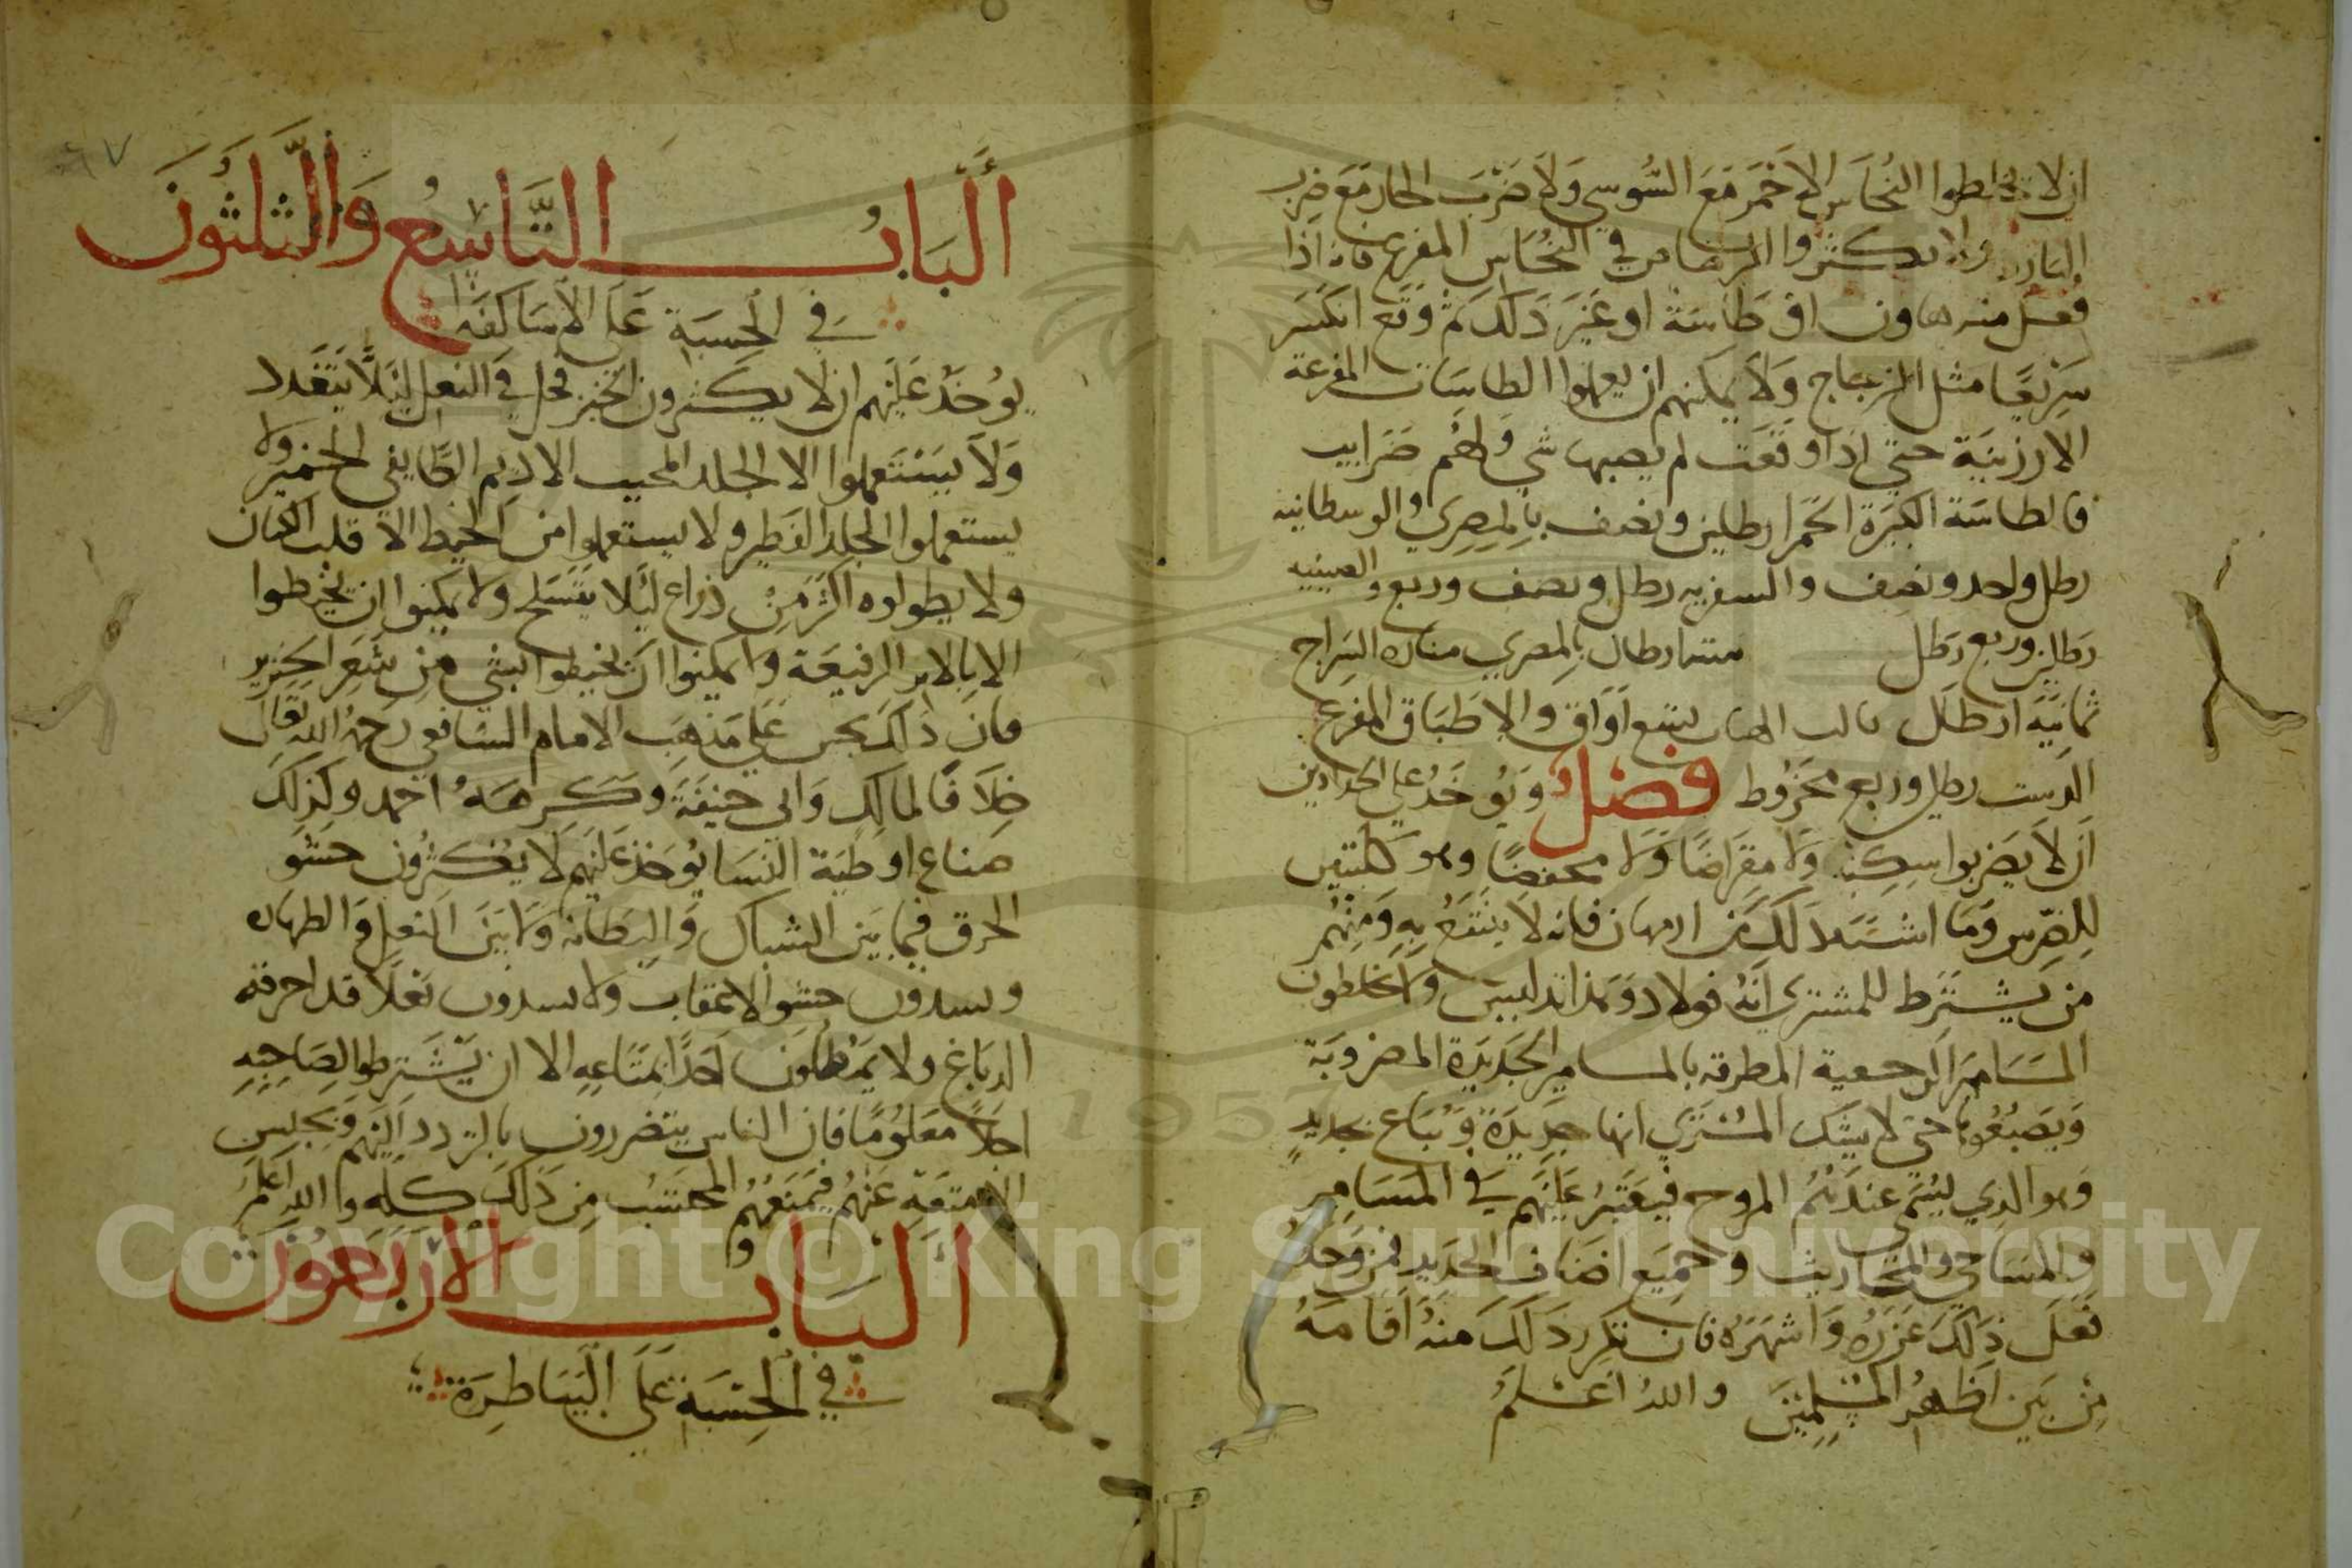 ان لا يخلطوا النحاس الاحمر مع السوسي ولا ضرب الحار مع ضرب
البارد ولا يكثروا الرصاص في النحاس المفرغ فانه اذا
فعل منه هاون او طاسة او غير ذلك ثم وقع انكسر
سريعا مثل الزجاج ولا يمكنهم ان يعملوا الطاسات المفرغة
الارزنية حتى اذا وقعت لم يصبها شي ولهم ضرايب
فالطاسة الكبيرة الحمرا رطلين ونصف بالمصري والوسطانيه
رطل واحد ونصف والسفريه رطل ونصف وربع والصينيه
رطلين وربع رطل ارطال بالمصري مناره السراج
ثمانية ارطال تسع اواق والاطباق المفرغ
الدست رطل وربع مخروط فصل ويؤخذ على الحدادين
ان لا يضربوا سكينا ولا مقراضا ولا وهو كلبتين
للضرس وما اشبه ذلك من فانه لا ينتفع به ومنهم
من يشترط للمشتري انه فولاد وهذا تدليس ولا يخلطون
المسامير الرجعية المطرقه بالمسامير الجديدة المضروبة
ويصبغوها حتى لا يشك المشتري انها جديدة وتباع بجديد
وهو الذي يسمى عندهم المروح فيعتبر عليهم في المسامير
والمساحي والمحاريث وجميع اصناف الحديد فمن وجده
فعل ذلك عزره واشهره فان تكرر ذلك منه اقامه
من بين اظهر المسلمين والله اعلم
الباب التاسع والثلثون
في الحسبة على الاساكفه
يوخذ عليهم ان لا يكثرون في النعل ليلا
ولا يستعملوا الا الجلد المحبب الاديم الطايفي الخمير ولا
يستعملوا الجلد الفطير ولا يستعملوا من الخيط الا قلب الكتان
ولا يطولوه اكثر من ذراع ليلا ينسلح ولا يمكنوا ان يخرطوا
الا بالابر الرفيعة ولا يمكنوا ان يخيطوا بشي من شعر الخنزير
فان ذلك نجس على مذهب الامام الشافعي رحمه الله تعالى
خلافا لمالك وابي حنيفة وكرهه احمد وكذلك
صناع اوطية النسا يوخذ عليهم لا يكثرون حشو
الخرق فيما بين الشباك والبطانه ولا بين النعل والظهاره
ويسدون حشو الاعقاب ولا يسدون نعلا قد احرقه
الدباغ ولا يمطلون احدا بمتاعه الا ان يشترطوا لصاحبه
اجلا معلوما فان الناس يتضررون بالتردد اليهم وبحبس
الامتعة عنهم فيمنعهم المحتسب من ذلك كله والله اعلم
الباب الاربعون
في الحسبة على البياطرة